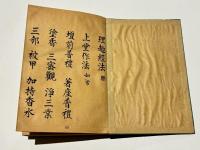 理趣經法
上堂作法如常
壇前普禮 著座普禮
塗香 三密觀 淨三業
三部 被甲 加持香水